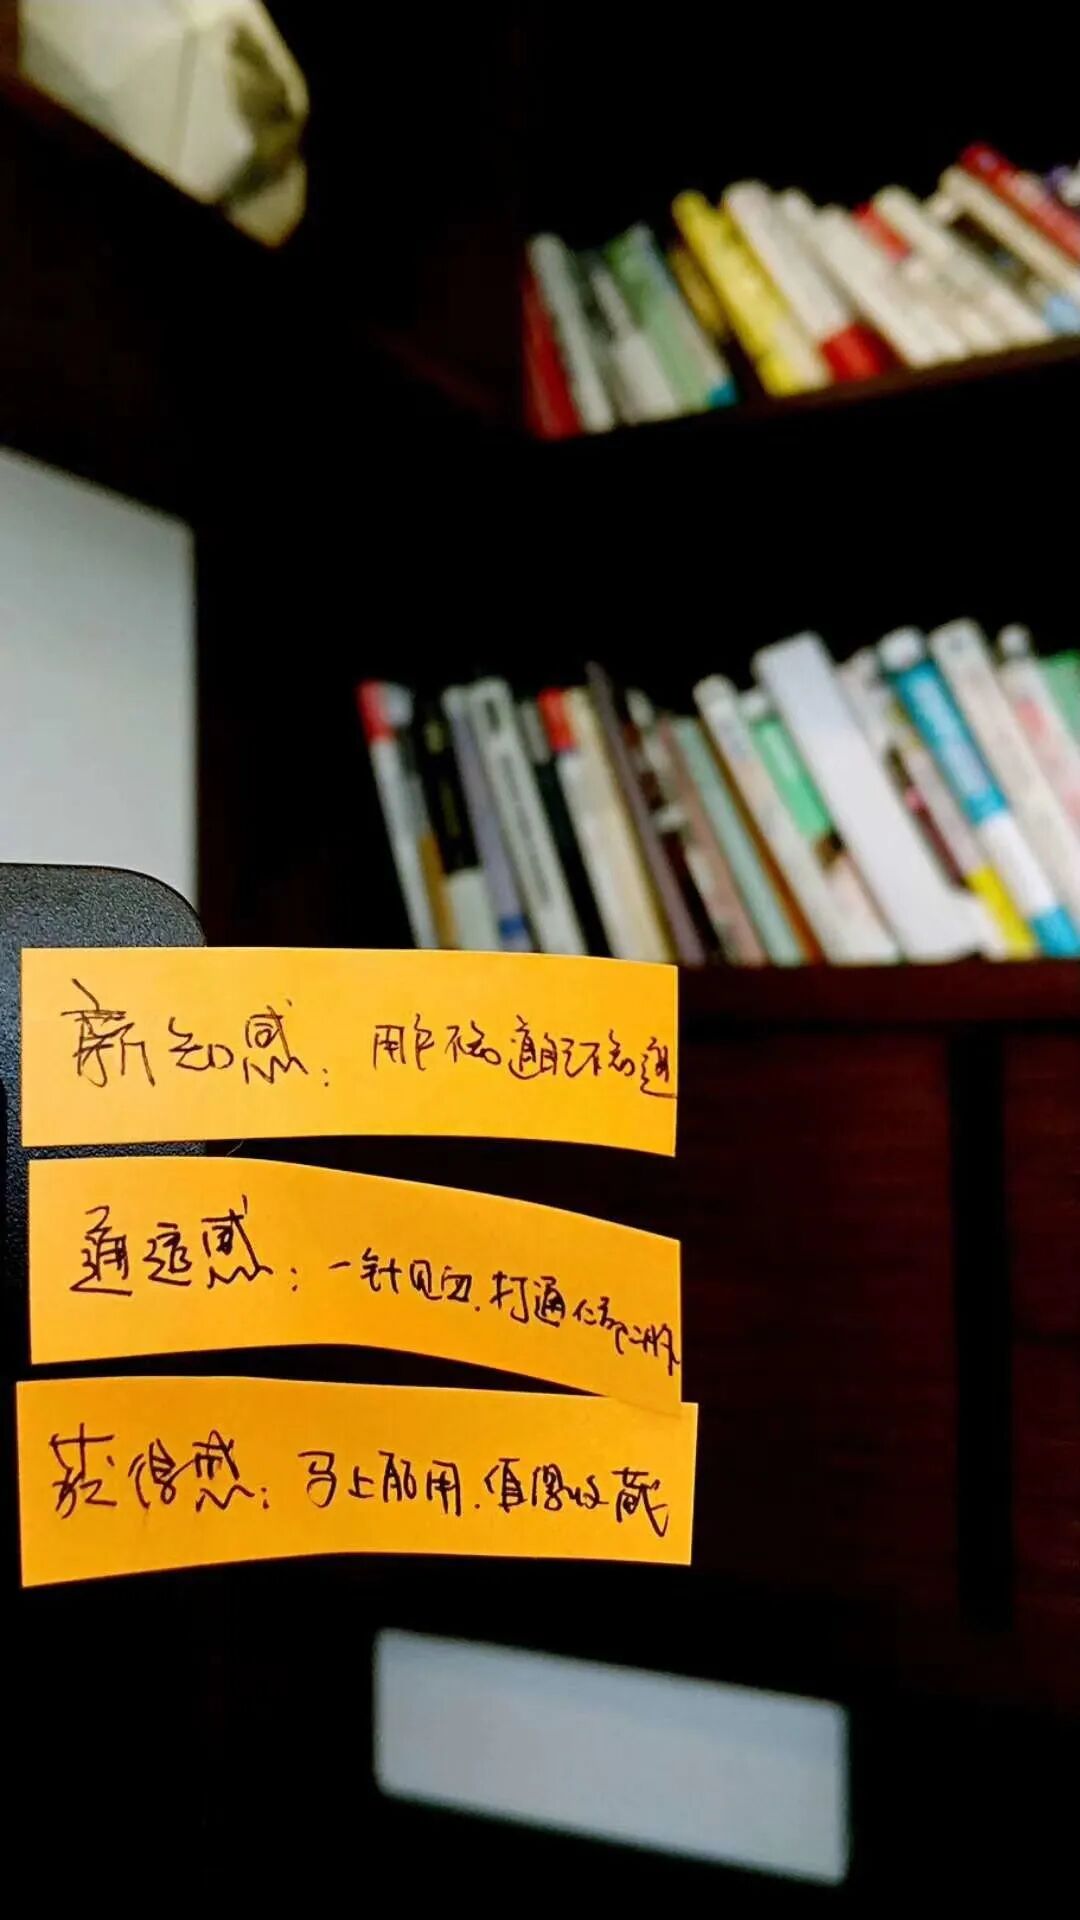 新知感：用户不知道自己不知道
通透感：一针见血．打通任督二脉
获得感：马上能用．值得收藏